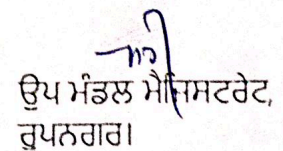 ਉਪ ਮੰਡਲ ਮੈਜਿਸਟਰੇਟ,
ਰੂਪਨਗਰ।